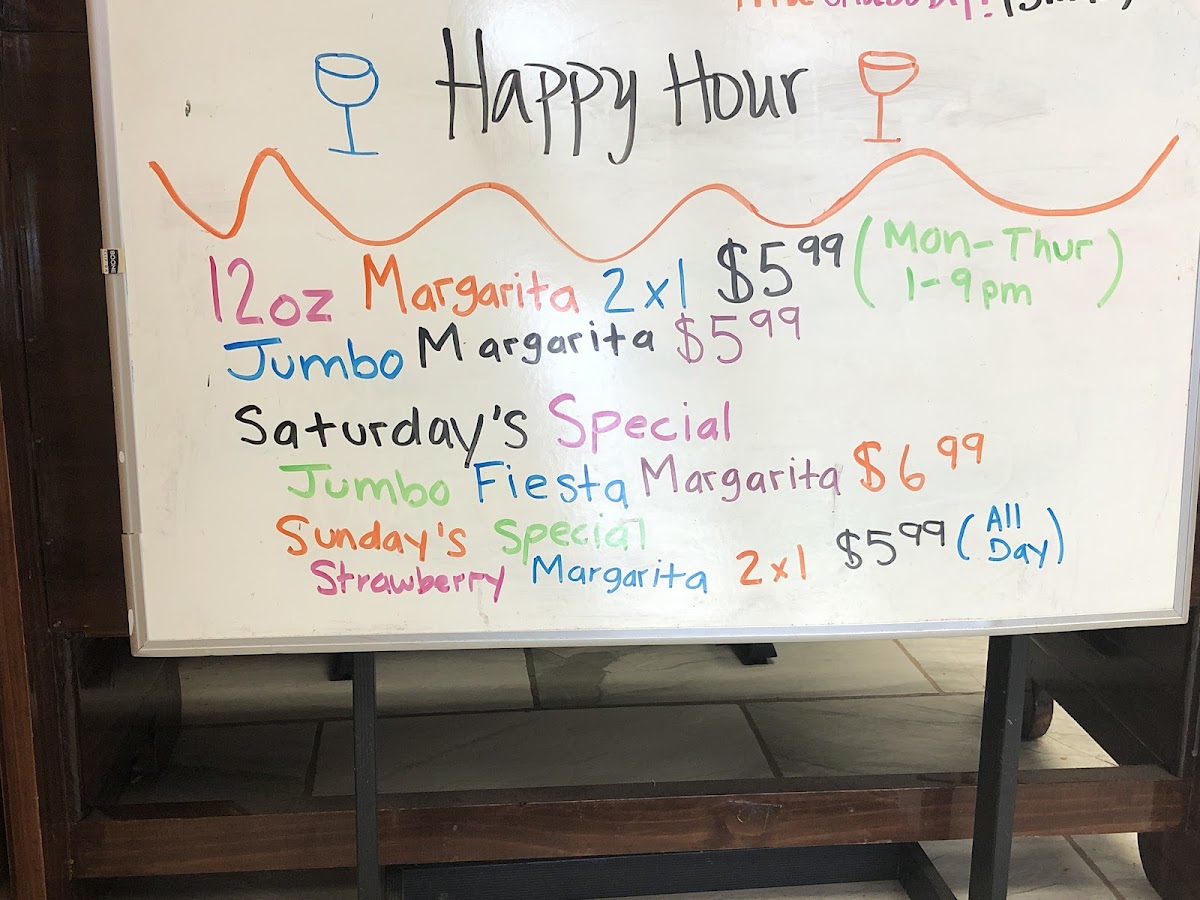 Happy Hour
12oz Margarita 2x1 $5.99 (Mon-Thur
1-9pm)
Jumbo Margarita $5.99
Saturday's Special
Jumbo Fiesta Margarita $6.99
Sunday's Special
Strawberry Margarita 2x1 $5.99 (All
Day)